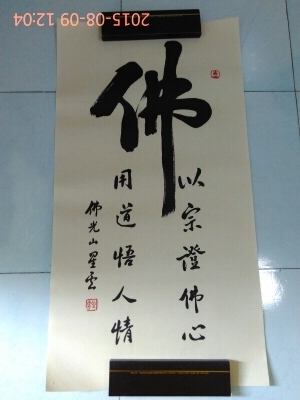 佛
以宗證佛心
用道悟人情
佛光山星雲
2015-08-09 12:04